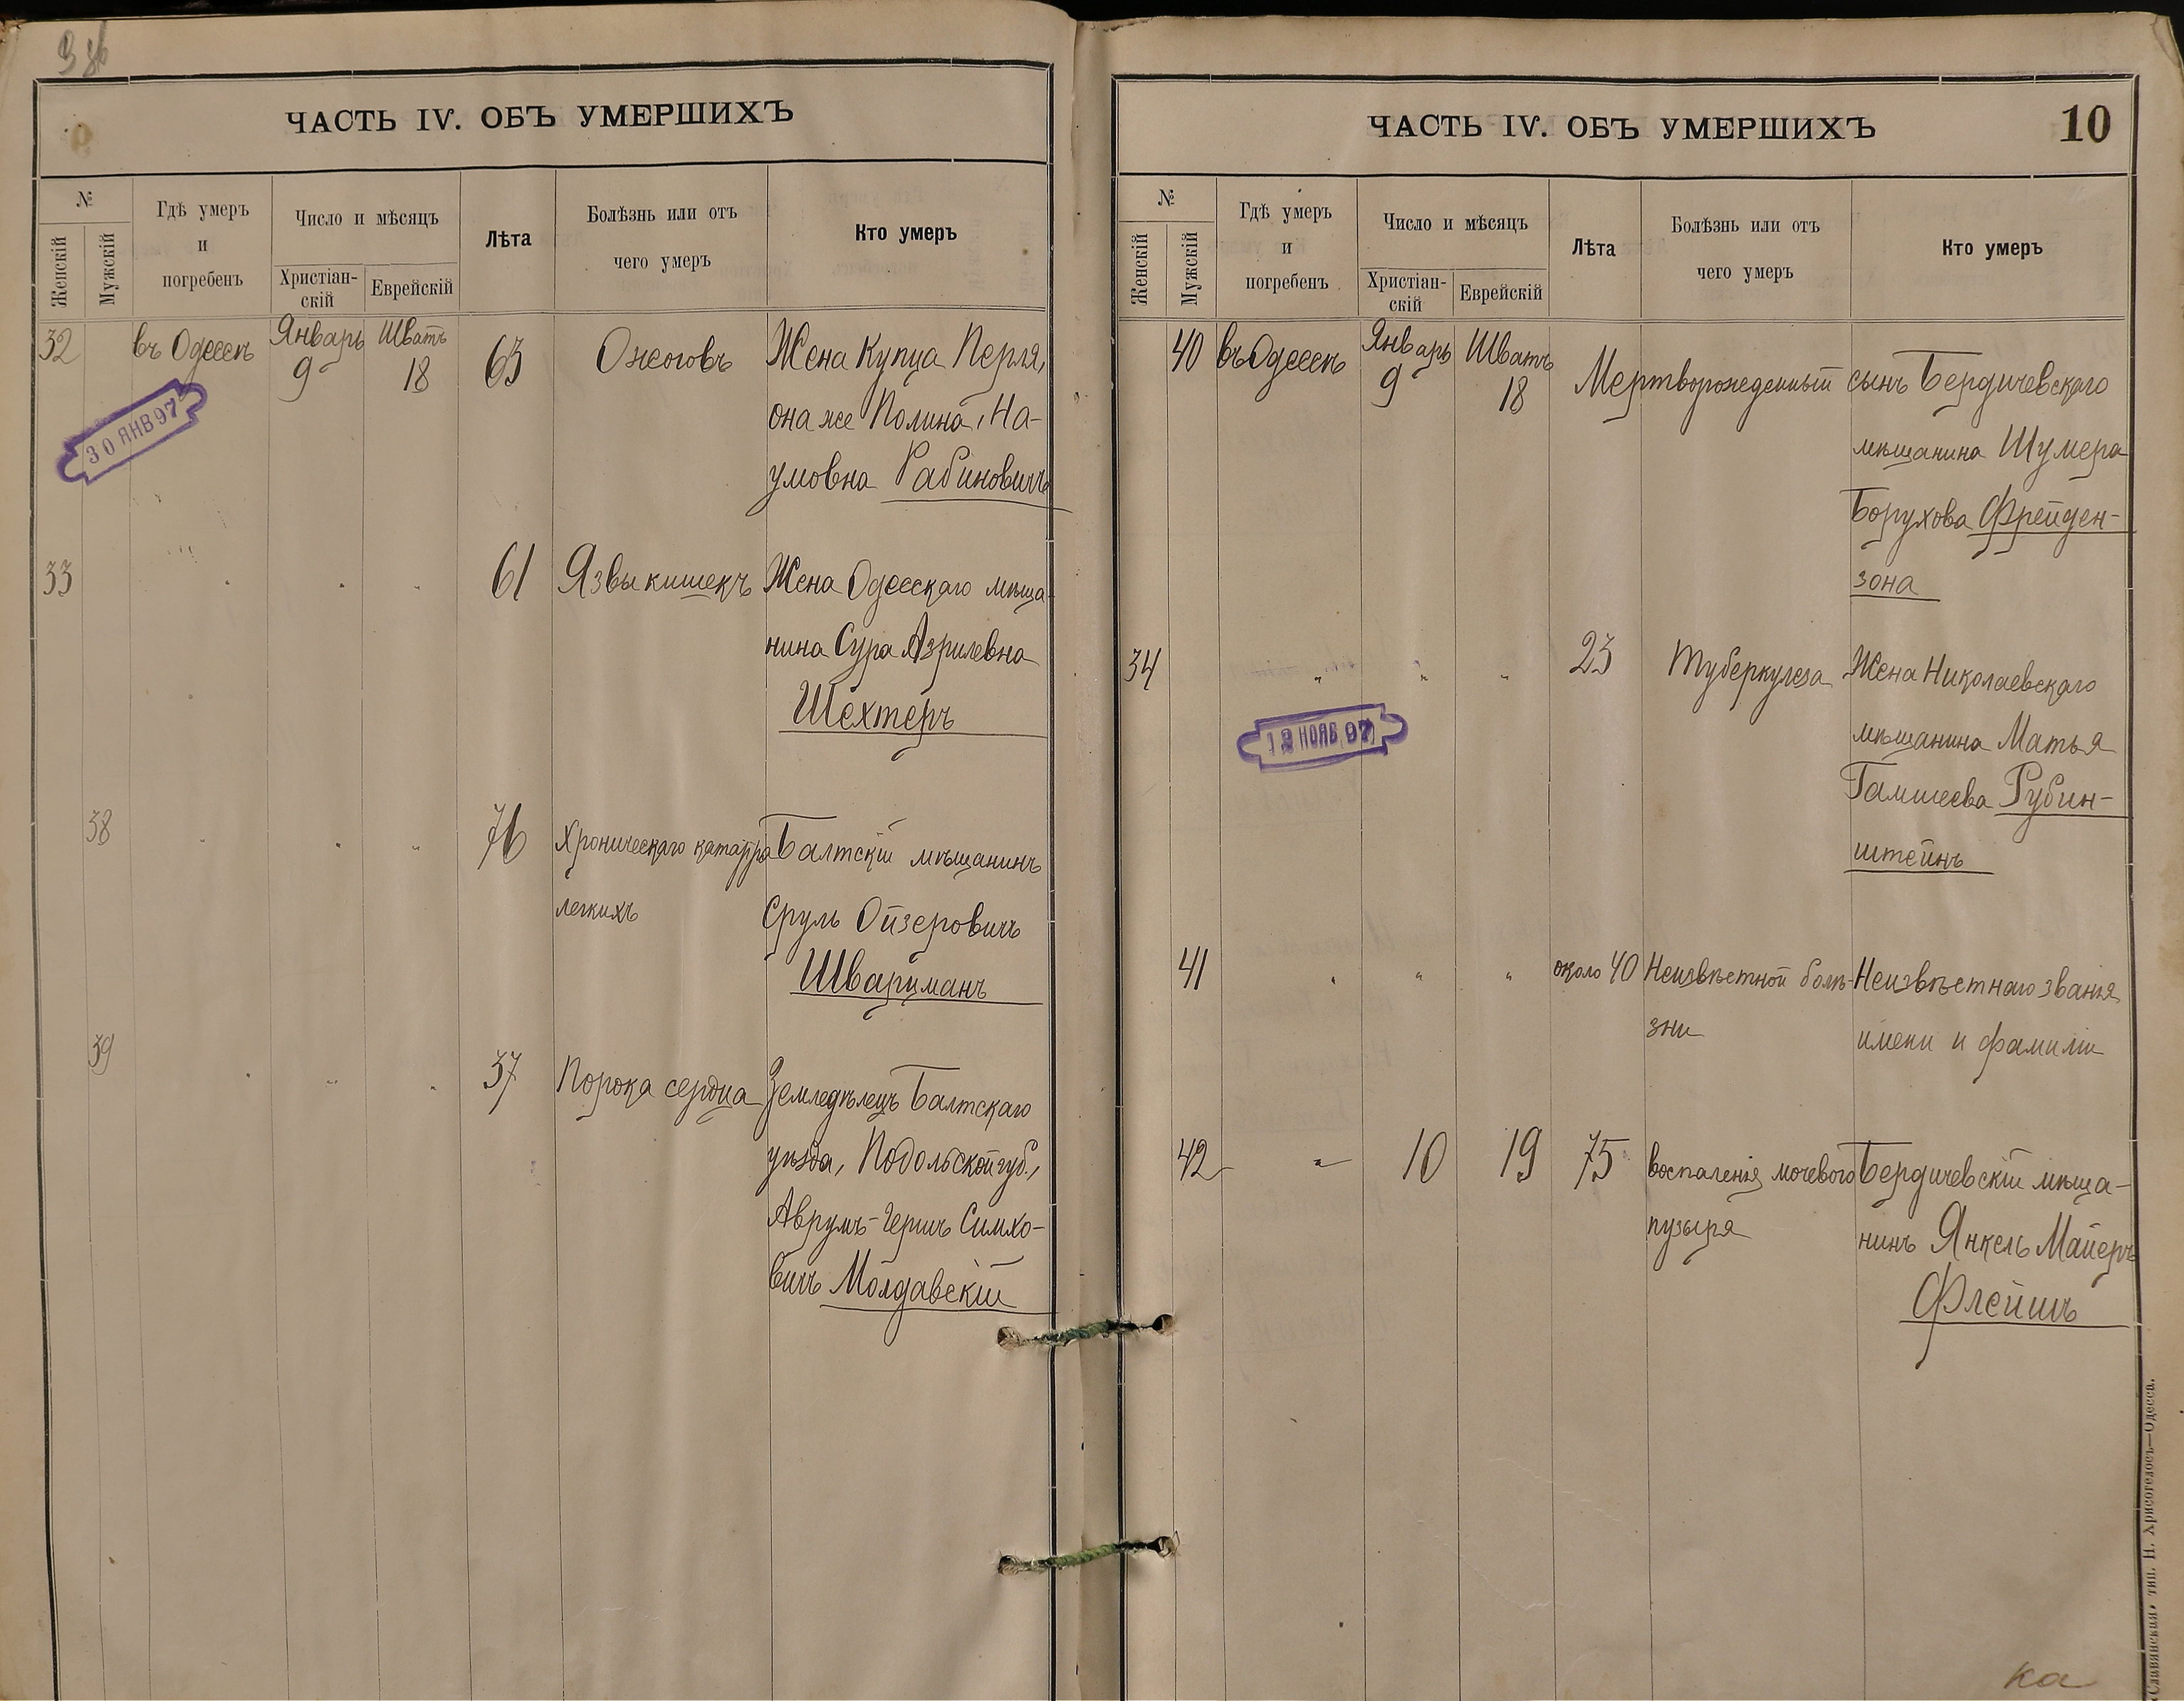 ЧАСТЬ IV. ОБЪ УМЕРШИХЪ
№
Женскій
Мужскій
Гдѣ умеръ
и
погребенъ
Число и мѣсяцъ
Христіан-
скій
Еврейскій
Лѣта
Болѣзнь или отъ
чего умеръ
Кто умеръ
32 въ Одессѣ Январь 9 Шватъ 18 63 Ожоговъ Жена Купца Перля,
она же Полина, На-
умовна Рабиновичъ
30 ЯНВ 97
33 " " " 61 Язвы кишекъ Жена Одесскаго мѣща-
нина Сура Азрилевна
Шехтеръ
38 " " " 76 Хроническаго катарра Балтскій мѣщанинъ
легкихъ Сруль Ойзеровичъ
Шварцманъ
39 " " " 37 Порока сердца Земледѣлецъ Балтскаго
уѣзда, Подольской губ.,
Аврумъ-Гершъ Симхо-
вичъ Молдавскій
ЧАСТЬ IV. ОБЪ УМЕРШИХЪ
10
№
Женскій
Мужскій
Гдѣ умеръ
и
погребенъ
Число и мѣсяцъ
Христіан-
скій
Еврейскій
Лѣта
Болѣзнь или отъ
чего умеръ
Кто умеръ
40 въ Одессѣ Январь 9 Шватъ 18 Мертворожденный сынъ Бердичевскаго
мѣщанина Шумера
Борухова Фрейден-
зона
34 " " " 23 Туберкулеза Жена Николаевскаго
мѣщанина Матья
Рубин-
штейнъ
12 НОЯБ 97
41 " " " около 40 Неизвѣстной болѣ- Неизвѣстнаго званія,
зни имени и фамиліи
42 " 10 19 75 воспаленія мочевого Бердичевскій мѣща-
пузыря нинъ Янкель Майеръ
Флейшъ
ка
«Славянская» тип. Н. Хрисогелосъ—Одесса.